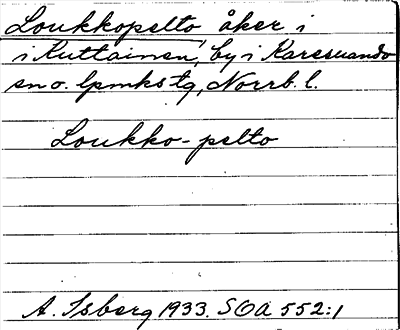 Loukkopelto åker i
i Kuttainen, by i Karesuando
sn o. lpmks tg, Norrb. l.
Loukko-pelto
A. Isberg 1933. SOA 552:1